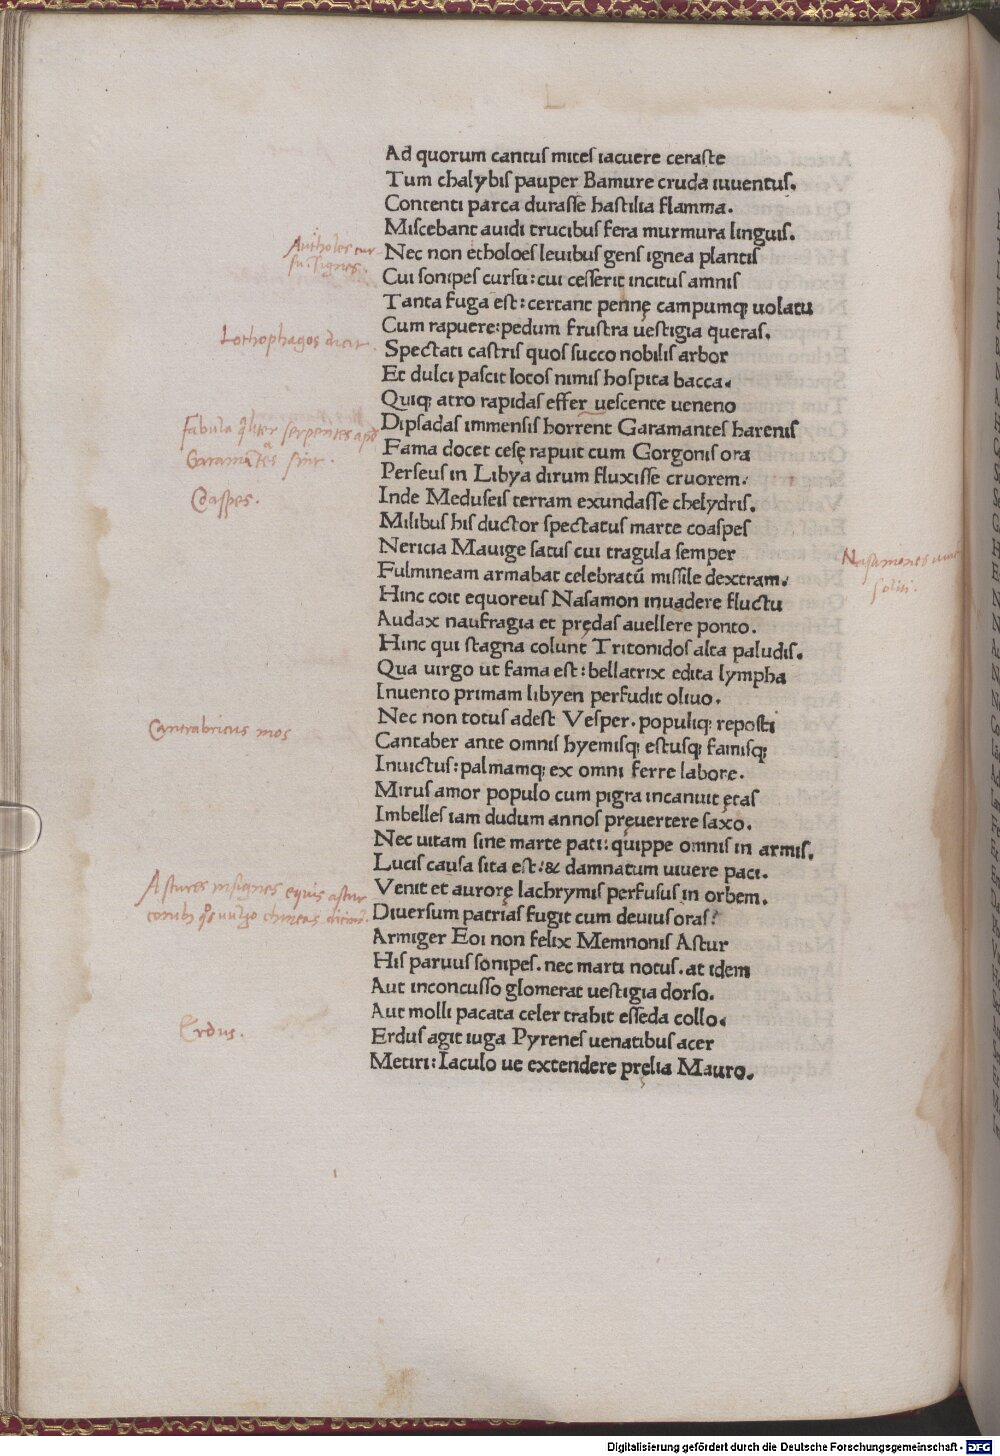 Ad quorum cantuſ miteſ iacuere ceraſte
Tum chalybiſ pauper Bamure cruda iuuentuſ.
Contenti parca duraſſe haſtilia flamma.
Miſcebant auidi trucibuſ fera murmura linguiſ.
Autholes cur
ſu Iſignes.
Nec non etholoeſ leuibuſ genſ ignea plantiſ
Cui ſonipeſ curſu: cui ceſſerit incituſ amniſ
Tanta fuga eſt: certant pennę campumq; uolatu
Cum rapuere: pedum fruſtra ueſtigia queraſ.
Lothophagos dicit.
Spectati caſtriſ quoſ ſucco nobiliſ arbor
Et dulci paſcit lotoſ nimiſ hoſpita bacca.
Quiq; atro rapidaſ effer ueſcente ueneno
Fabula qͥliter serpentes apd
Garamātes ſint.
Dipſadaſ immenſiſ horrent Garamanteſ hareniſ
Fama docet ceſę rapuit cum Gorgoniſ ora
Perſeuſ in Libya dirum fluxiſſe cruorem.
Coaſpes.
Inde Meduſeiſ terram exundaſſe chelydriſ.
Milibuſ hiſ ductor ſpectatuſ marte coaſpeſ
Nericia Mauige ſatuſ cui tragula ſemper
Nasamones
ſoliti.
Fulmineam armabat celebratū miſſile dextram.
Hinc coit equoreuſ Naſamon inuadere fluctu
Audax naufragia et prędaſ auellere ponto.
Hinc qui ſtagna colunt Tritonidoſ alta paludiſ.
Qua uirgo ut fama eſt: bellatrix edita lympha
Inuento primam libyen perfudit oliuo.
Nec non totuſ adeſt Veſper. populiq; repoſti
Cantabricus mos
Cantaber ante omniſ hyemiſq; eſtuſq; famiſq;
Inuictuſ: palmamq; ex omni ferre labore.
Miruſ amor populo cum pigra incanuit ętaſ
Imbelleſ iam dudum annoſ pręuertere ſaxo.
Nec uitam ſine marte pati: quippe omniſ in armiſ.
Luciſ cauſa ſita eſt: & damnatum uiuere paci.
Astures insignes equis astur
conib qͦs uulgo chineas dicim.
Venit et aurorę lachrymiſ perfuſuſ in orbem.
Diuerſum patriaſ fugit cum deuiuſ oraſ?
Armiger Eoi non felix Memnoniſ Aſtur
Hiſ paruuſ ſonipeſ. nec marti notuſ. at idem
Aut inconcuſſo glomerat ueſtigia dorſo.
Aut molli pacata celer trahit eſſeda collo.
Erdus.
Erduſ agit iuga Pyreneſ uenatibuſ acer
Metiri: Iaculo ue extendere pręlia Mauro.
Digitalisierung gefördert durch die Deutsche Forschungsgemeinschaft - DFG